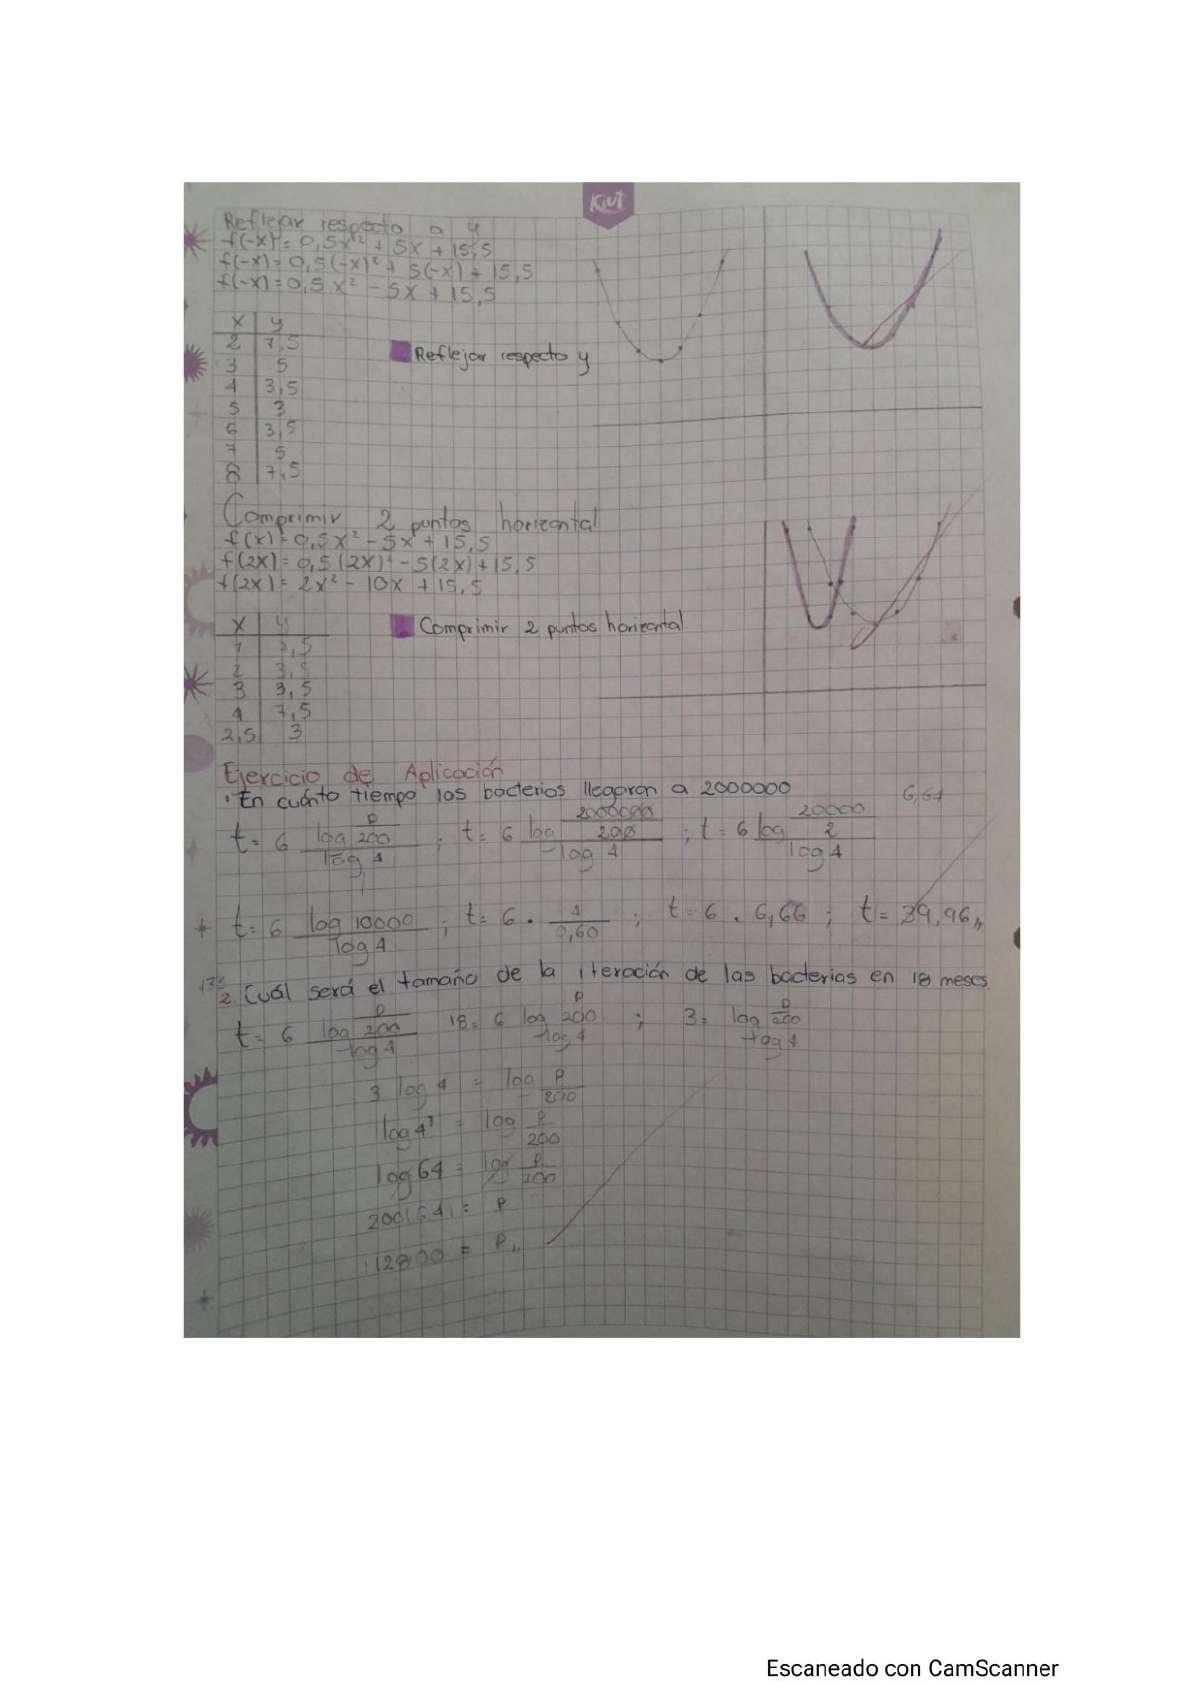 Kiut
Reflejar respecto a y
f(-x) = 0,5x² + 5x + 15,5
f(-x) = 0,5(-x)² + 5(-x) + 15,5
f(-x) = 0,5x² - 5x + 15,5
x y
2 7,5
3 5
4 3,5
5 3
6 3,5
7 5
8 7,5
Reflejar respecto y
Comprimir 2 puntos horizontal
f(x) = 0,5x² - 5x + 15,5
f(2x) = 0,5(2x)² - 5(2x) + 15,5
f(2x) = 2x² - 10x + 15,5
x y
1 7,5
2 3,5
3 3,5
4 7,5
2,5 3
Comprimir 2 puntos horizontal
Ejercicio de Aplicación
En cuánto tiempo las bacterias llegaran a 2000000
6,64
t = 6 log P/200 / log 4 ; t = 6 log 2000000/200 / log 4 ; t = 6 log 20000/2 / log 4
t = 6 log 10000 / log 4 ; t = 6 . 4/0,60 ; t = 6 . 6,66 ; t = 39,96
2. Cuál será el tamaño de la iteración de las bacterias en 18 meses.
t = 6 log P/200 / log 4 18 = 6 log P/200 / log 4 ; 3 = log P/200 / log 4
3 log 4 = log P/200
log 4³ = log P/200
log 64 = log P/200
200(64) = P
12800 = P
Escaneado con CamScanner